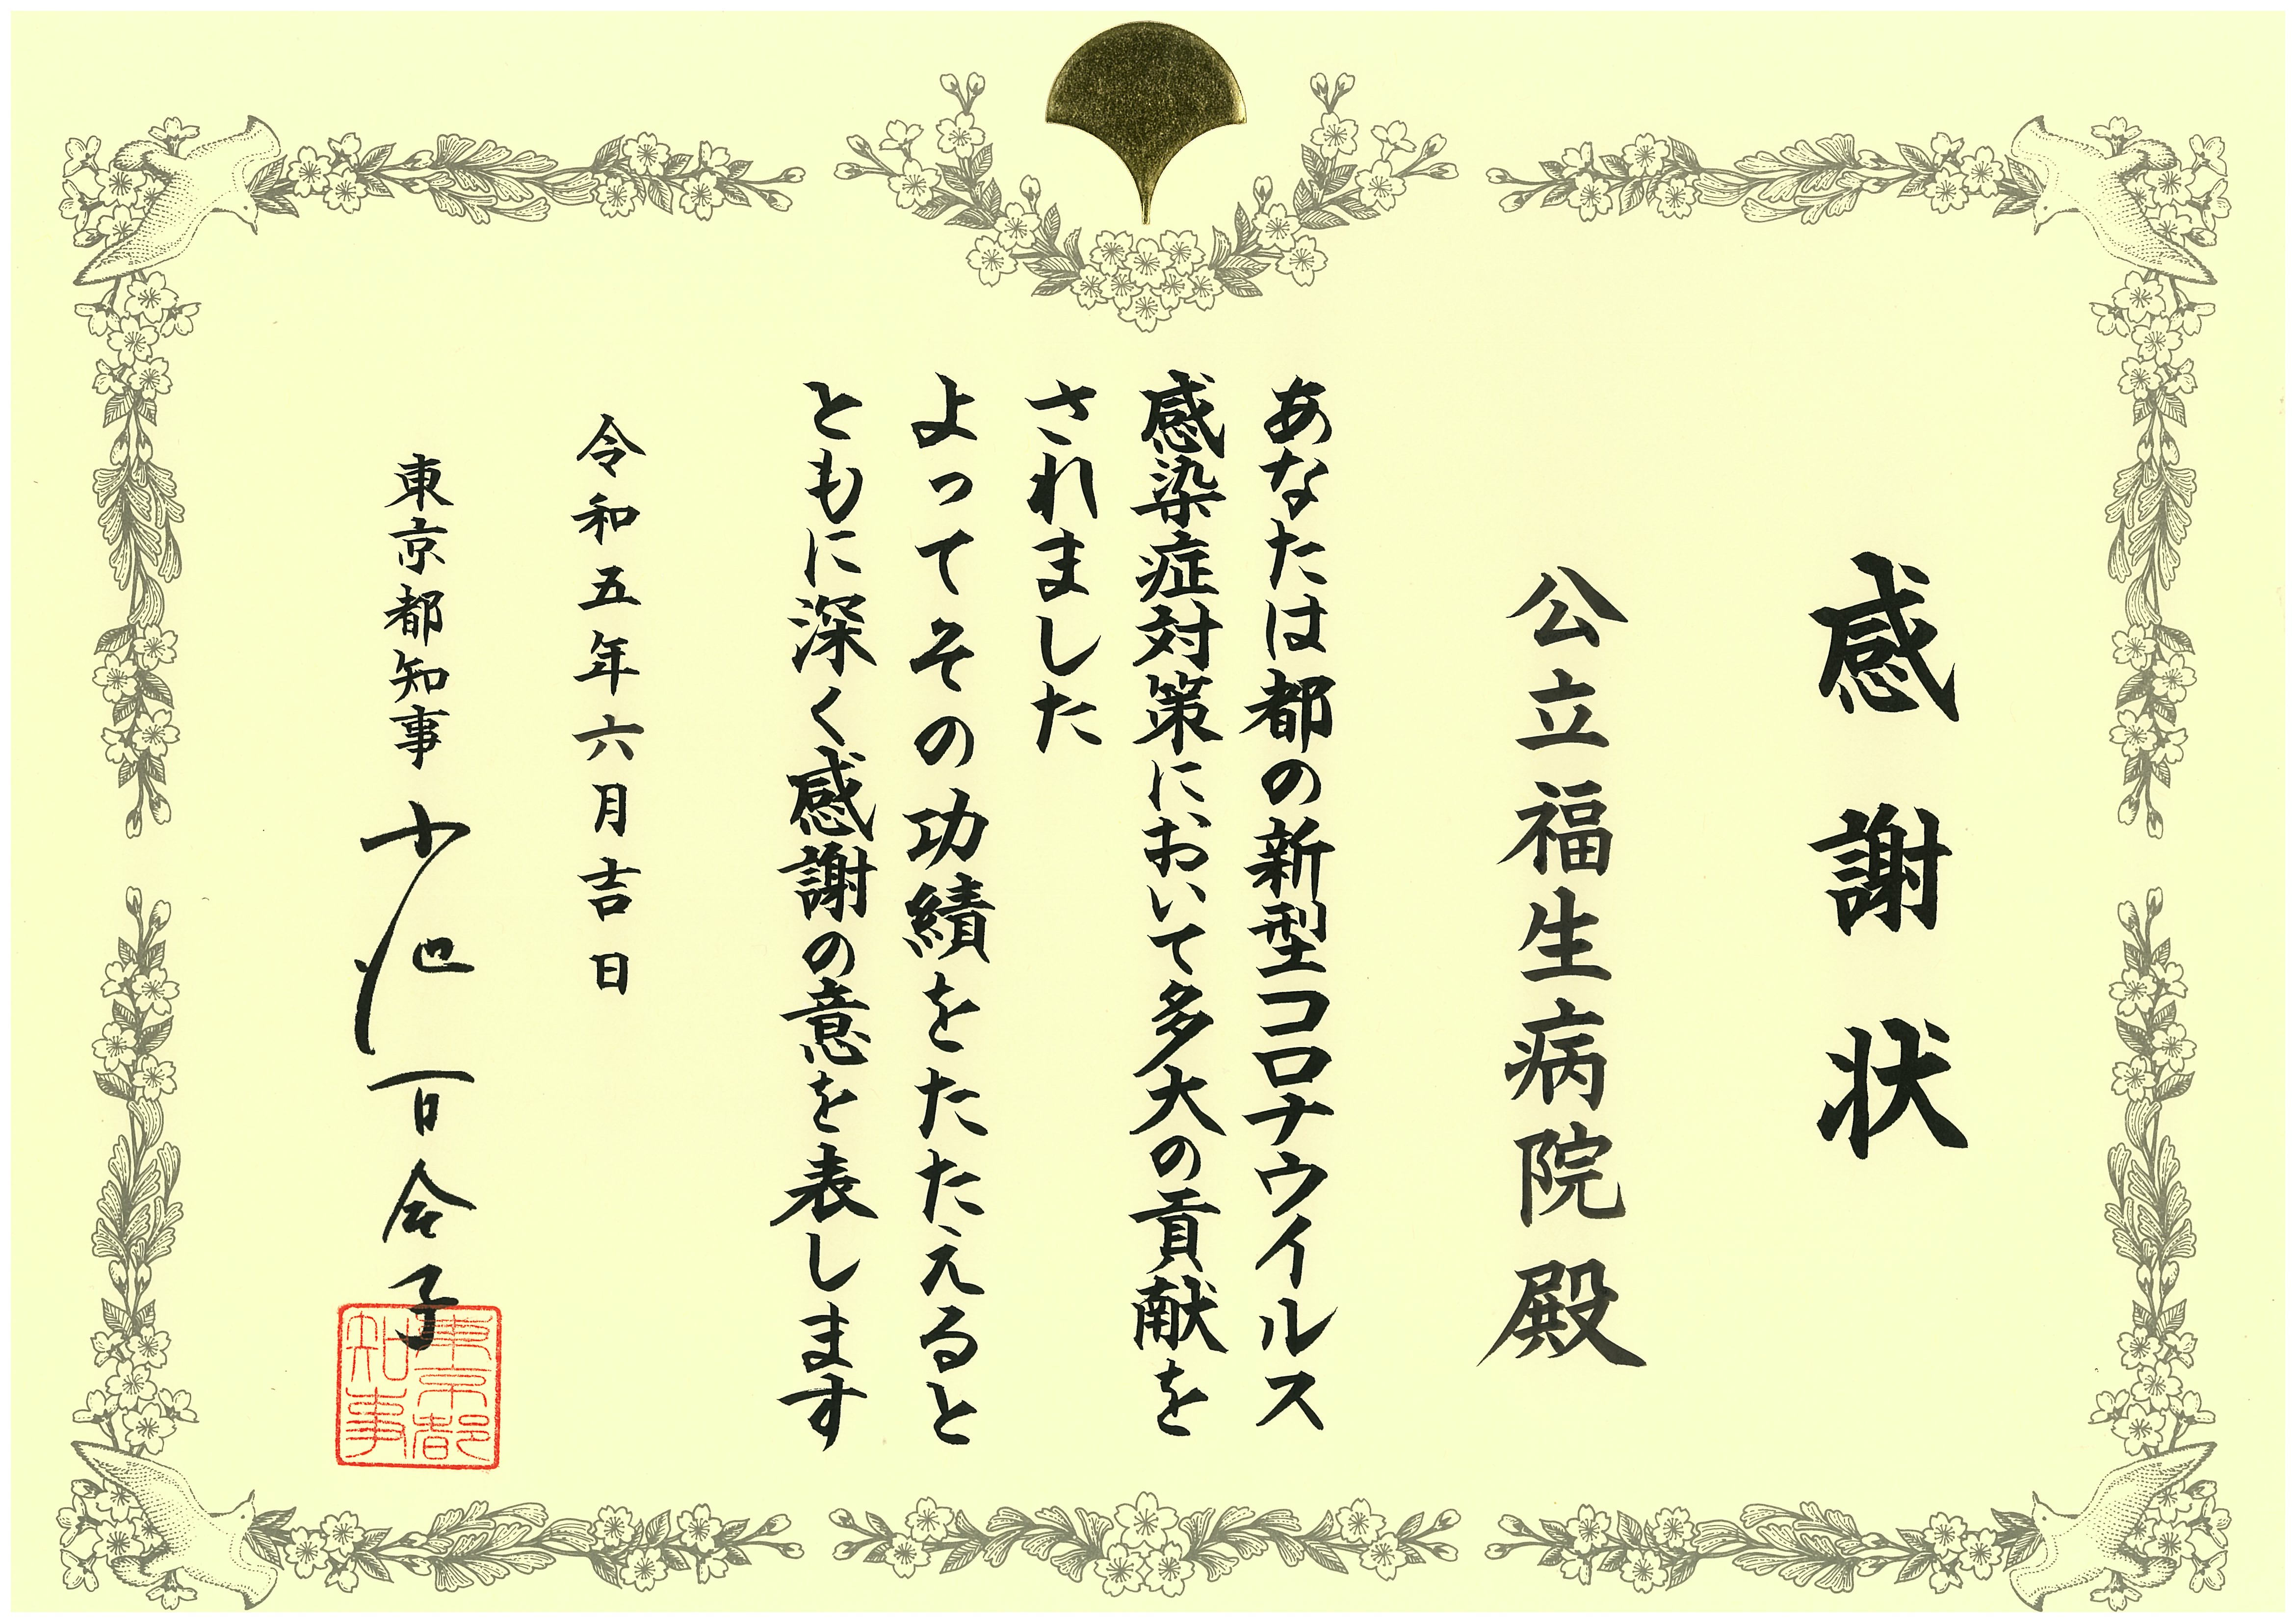 感謝状
公立福生病院殿
あなたは都の新型コロナウイルス
感染症対策において多大の貢献を
されました
よってその功績をたたえると
ともに深く感謝の意を表します
令和五年六月吉日
東京都知事 小池百合子
東京都
知事